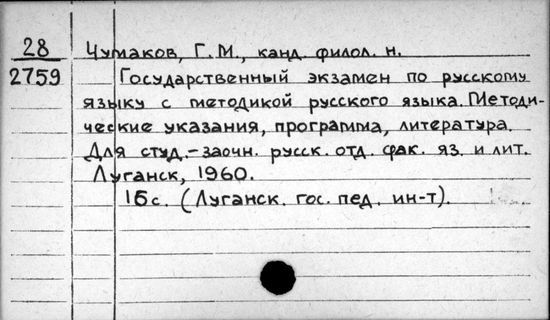 28 Чумаков, Г.М., канд. филол. н.
2759 Государственный экзамен по русскому
языку с методикой русского языка. Методи-
ческие указания, программа, литература.
Для студ.-заочн. русск. отд. фак. яз. и лит.
Луганск, 1960.
16 с. (Луганск. гос. пед. ин-т).